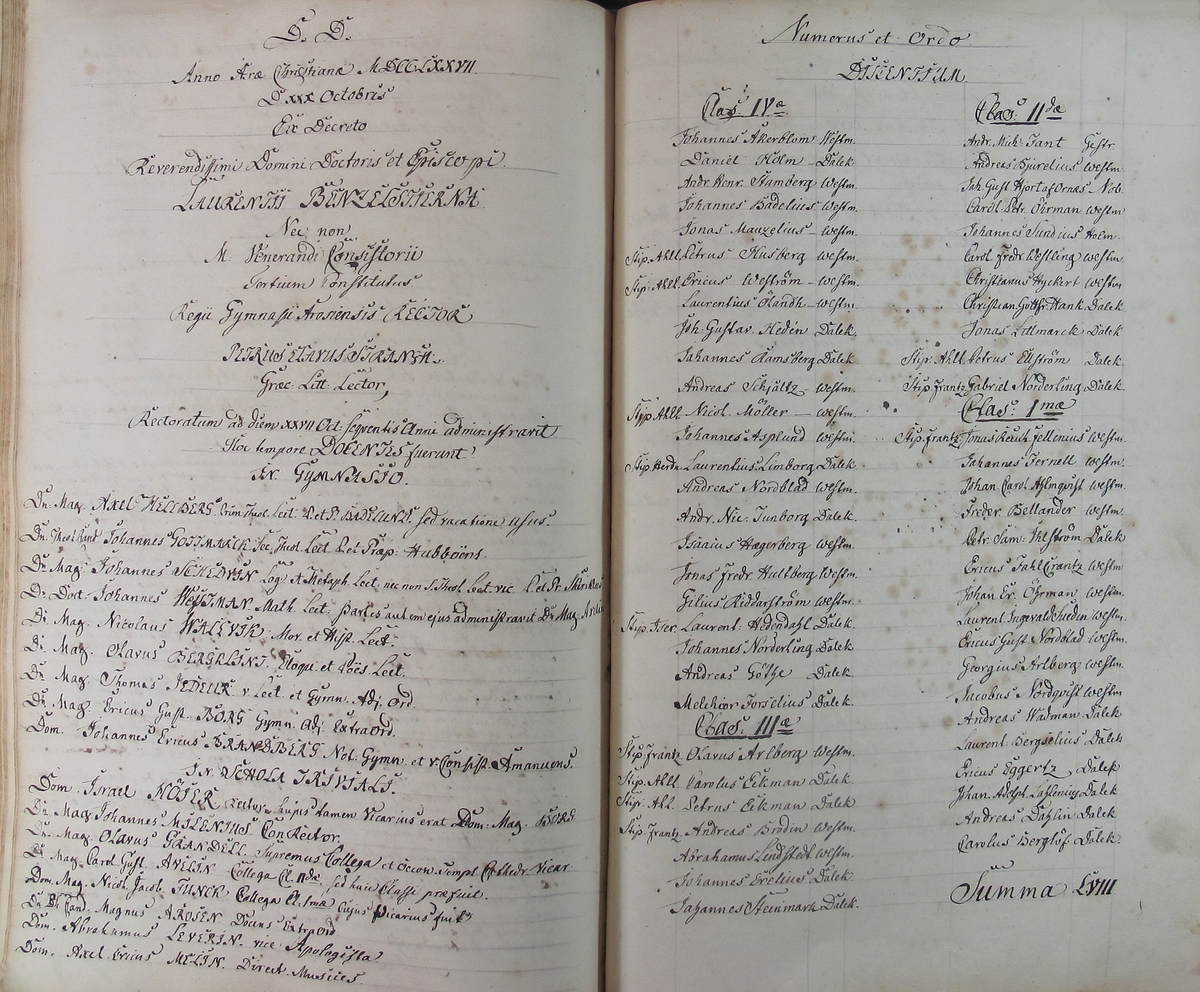 D. D.
Anno Æræ Christianæ MDCCLXXVII
D. XXX Octobris
Ex Decreto
Reverendissimi Domini Doctoris et Episcopi
LAURENTII BENZELSTIERNA
Nec non
M. Venerandi Consistorii
Sortium Constitutus
Regii Gymnasii Arosiensis RECTOR
PETRUS OLAVUS STRANDH.
Græc. Litt. Lector,
Rectoratum ad diem XXVII Oct. sequentis Anni administravit
Hoc tempore DOCENTES fuerunt
IN GYMNASIO.
Dn. Mag. AXEL HELLBERG Prim. Theol. Lect. sed vacatione usus.
Dn. Johannes GOTHMARCK Sec. Theol. Lect. et Præp. Hubboëns.
Dn. Mag. Johannes SCHEDVIN Log. et Metaph. Lect. nec non S. Theol. Lect. vic.
Dn. Doct. Johannes WESTMAN. Math. Lect. Partes autem ejus administravit Dn. Mag.
Dn. Mag. Nicolaus WALLVIK. Mor. et Hist. Lect.
Dn. Mag. Olavus BERGKLINT. Eloqu. et Poës. Lect.
Dn. Mag. Thomas v. Lect. et Gymn. Adj. Ord.
Dn. Mag. Ericus Gust. BORG Gymn. Adj. ExtraOrd.
Dom. Johannes Ericus BRANDBERG Not. Gymn. et v. Consist. Amanuens.
IN SCHOLA TRIVIALI.
Dom. Israel NÖSER Rector, cujus tamen Vicarius erat Dom. Mag. BORG
Dn. Mag. Johannes MILENIUS ConRector.
Dn. Mag. Olavus GRANDELL Supremus Collega et Oecon. Templ. Cathedr. Vicar.
Dn. Mag. Carol Gust. AVELIN Collega Cl. IIdæ, sed huic Classi præfuit.
Dom. Mag. Nicol. Jacob. TUNCK Collega Cl. Imæ cujus Vicarius fuit
Dn. Ph. Cand. Magnus AROSEN Docens ExtraOrd.
Dom. Abrahamus LEVERIN. vice Apologista
Dom. Axel Ericus MELIN. Direct. Musices.
Numerus et Ordo
DISCENTIUM
Clas. IVæ
Johannes Åkerblom Westm.
Daniel Holm Dalek.
Andr. Henr. Stamberg Westm.
Johannes Badelius Westm.
Jonas Mauzelius – Westm.
Stip. Ahll. Petrus Husberg Westm.
Stip. Ahll. Ericus Weström – Westm.
Laurentius Ölandh – Westm.
Joh. Gustav. Hedén Dalek.
Johannes Ramsberg Dalek.
Andreas Schjältz – Westm.
Stip. Ahll. Nicol. Möller – Westm.
Johannes Asplund Westm.
Stip. Hedn. Laurentius Limborg Dalek.
Andreas Nordblad Westm.
Andr. Nic. Tunborg Dalek.
Isaius Hægerberg Westm.
Jonas Fredr. Hullberg Westm.
Gilius Riddarström Westm.
Stip. Laurent. Hedendahl Dalek.
Johannes Norderling Dalek.
Andreas Göthe Dalek.
Melchior Forselius Dalek.
Clas. IIIæ
Stip. Frantz. Olavus Arlberg Westm.
Stip. Ahll. Carolus Ekman Dalek
Stip. Ahl. Petrus Ekman Dalek
Stip. Frantz. Andreas Brodin Westm.
Abrahamus Lindstedt Westm.
Johannes Erelius Dalek
Johannes Steinmark Dalek.
Clas. IIdæ
Andr. Mich. Fant Gestr.
Andreas Bjurelius Westm.
Joh. Gust. Hjort af Ornäs Nob.
Carol. Petr. Öhrman Westm
Johannes Sundius Holm.
Carol Fredr. Westling Westm.
Christianus Hyckert Westm.
Christian Gottfr. Hank Dalek
Jonas Littmarck Dalek
Stip. Ahll. Petrus Elfström Dalek.
Stip. Frantz. Gabriel Norderling Dalek.
Clas. Imæ
Stip. Frantz. Jonas Fellenius Westm.
Johannes Fernell Westm.
Johan Carol Holmqvist Westm.
Freder. Bellander Westm.
Petr. Sam. Ihlström Dalek
Ericus Fahlcrantz Westm
Johan Er. Öhrman Westm.
Laurent. Ingevald Hedin Westm.
Ericus Gust. Nordblad Westm.
Georgius Arlberg Westm.
Jacobus Nordqvist Westm
Andreas Wadman Dalek
Laurent. Bergselius Dalek
Ericus Eggertz Dalek
Johan Adolph Dalek
Andreas Dahlin Dalek
Carolus Berglöf Dalek.
Summa LVIII